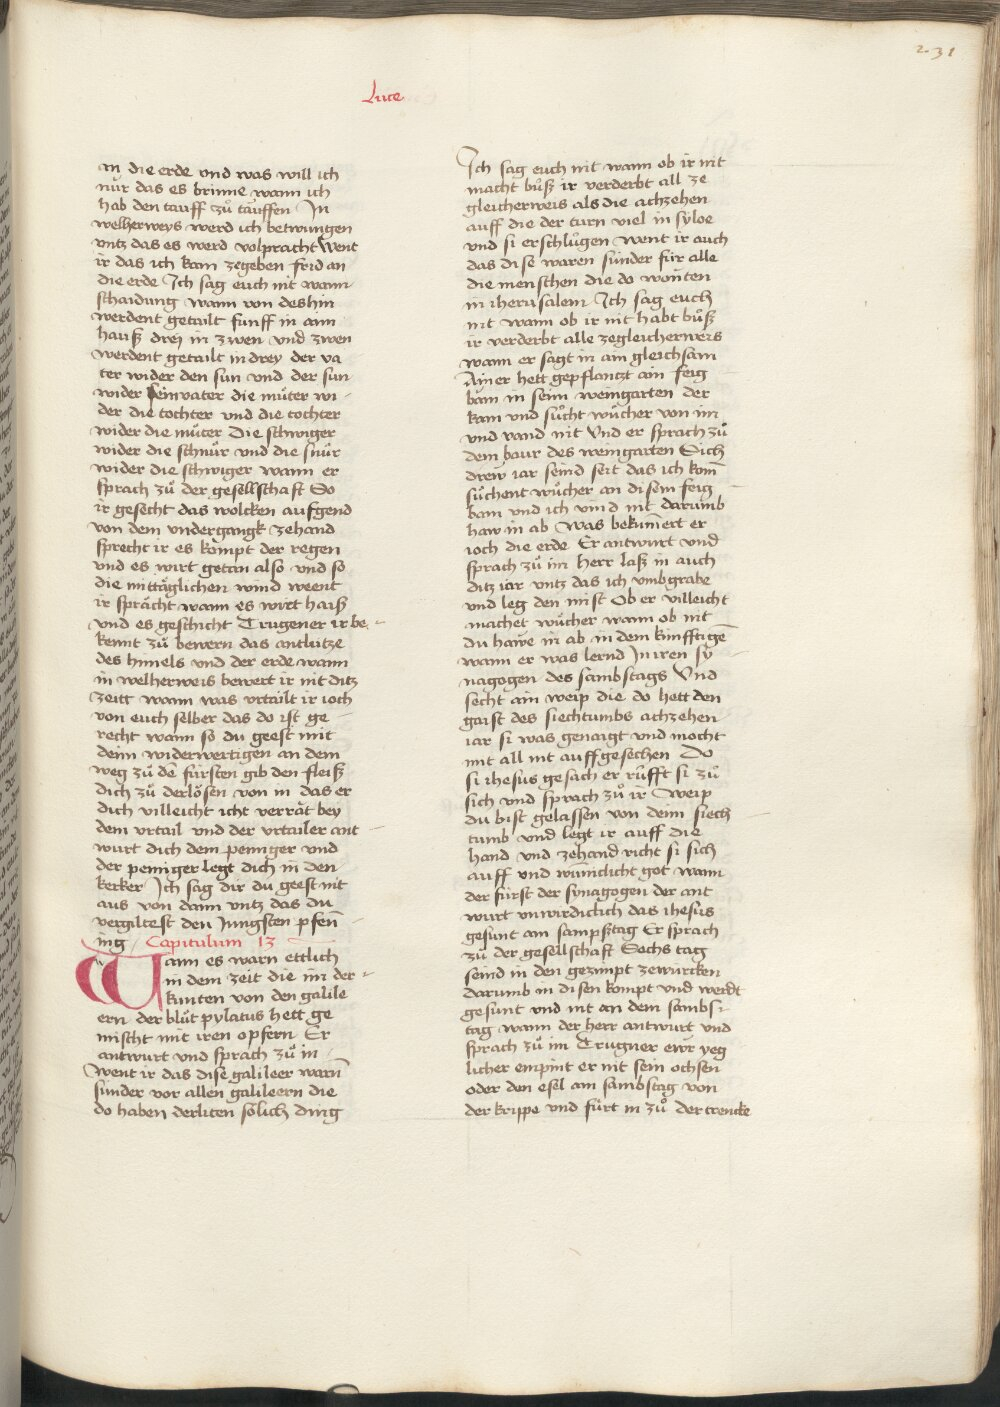 231
Luce
in die erde vnd was will ich
nür das es brinne wann ich
hab den tauff zů täuffen In
welherweys werd ich betwungen
vntz das es werd volpracht Went
ir das ich kam zegeben frid an
die erde Ich sag euch nit wann
schaidung wann von deshin
werdent getailt funff in aim
hauß drej in zwen vnd zwen
werdent getailt in drey der va
ter wider den sun vnd der sun
wider sein vater die můter wi-
der die tochter vnd die tochter
wider die můter Die schwiger
wider die schnůr vnd die snůr
wider die schwiger wann er
sprach zů der gesellschaft So
ir gesecht das wolcken aufgend
von dem vndergangk zehand
sprecht ir es kompt der regen
vnd es wirt getan also vnd so
die mittäglichen wind weent
ir sprächt wann es wirt haiß
vnd es geschicht Trugener ir be-
kennt zů bewern das antlutze
des himels vnd der erde wann
in welherweis bewert ir nit ditz
zeitt wann was vrtailt ir ioch
von euch selber das do ist ge-
recht wann so du geest mit
deim widerwertigen an dem
weg zů dē fürsten gib den fleiß
dich zů derlösen von im das er
dich villeicht icht verrät bey
dem vrtail vnd der vrtailer ant-
wurt dich dem peiniger vnd
der peiniger legt dich in den
kerker Ich sag dir du geest nit
aus von dann vntz das du
vergiltest den Jungsten pfen̄
ing Capitulum 13
Wann es warn ettlich
in dem zeit die im der-
kunten von den galile
ern der blůt pylatus hett ge
mischt mit iren opfern Er
antwurt vnd sprach zů in
Went ir das dise galileer warn̄
sünder vor allen galileern die
do haben derliten sölich ding
Ich sag euch nit wann ob ir nit
macht bůß ir verderbt all ze
gleicherweis als die achzehen
auff die der turn viel in syloe
vnd si erschlůgen went ir auch
das dise waren sünder für alle
die menschen die do wonten
in iherusalem Ich sag euch
nit wann ob ir nit habt bůß
ir verderbt alle zegleicherweis
wann er sagt in ain gleichsam
Ainer hett gepflantzt ain feig
bam in seim weingarten der
kam vnd sůcht wůcher von im
vnd vand nit Vnd er sprach zů
dem baur des weingarten Sich
drew iar seind seit das ich kom̄
sůchent wůcher an disem feig-
bam vnd ich vind nit darumb
haw in ab Was bekumert er
ioch die erde Er antwurt vnd
sprach zů im herr laß in auch
ditz iar vntz das ich vmbgrabe
vnd leg den mist Ob er villeicht
machet wůcher wann ob nit
du hawe in ab in dem kunfftigē
wann er was lernd In iren sy-
nagogen des sambstags Vnd
secht ain weip die do hett den
gaist des siechtumbs achzehen
iar si was genaigt vnd mocht
mit all nit auff gesechen Do
si ihesus gesach er růfft si zů
sich vnd sprach zů ir Weip
du bist gelassen von deim siech-
tumb vnd legt ir auff die
hand vnd zehand richt si sich
auff vnd wunniclicht got wann
der fürst der synagogen der ant
wurt vnwirdiclich das ihesus
gesunt am sampßtag Er sprach
zů der gesellschaft Sechs tag
seind in den gezimpt zewürcken
darumb in disen kompt vnd werdt
gesunt vnd nit an dem sambs-
tag wann der herr antwurt vnd
sprach zů im Trugner ewr yeg
licher empint er nit sein ochsen
oder den esel am sambstag von
der krippe vnd fürt in zů der trencke